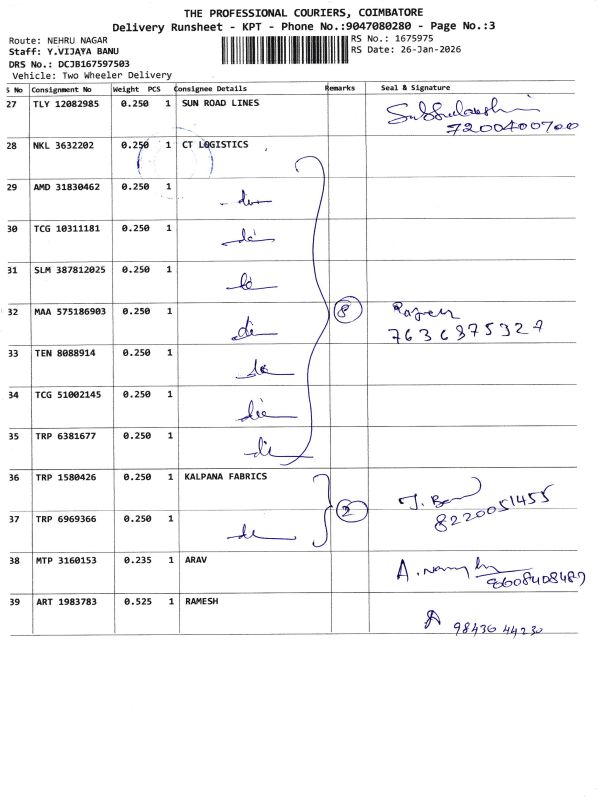 THE PROFESSIONAL COURIERS, COIMBATORE
Delivery Runsheet - KPT - Phone No.:9047080280 - Page No.:3
Route: NEHRU NAGAR
RS No.: 1675975
Staff: Y.VIJAYA BANU
RS Date: 26-Jan-2026
DRS No.: DCJB167597503
Vehicle: Two Wheeler Delivery
S No Consignment No Weight PCS Consignee Details Remarks Seal & Signature
27 TLY 12082985 0.250 1 SUN ROAD LINES
7200400700
28 NKL 3632202 0.250 1 CT LOGISTICS
29 AMD 31830462 0.250 1
30 TCG 10311181 0.250 1
31 SLM 387812025 0.250 1
32 MAA 575186903 0.250 1 8
33 TEN 8088914 0.250 1
34 TCG 51002145 0.250 1
35 TRP 6381677 0.250 1
36 TRP 1580426 0.250 1 KALPANA FABRICS
2
8220051455
37 TRP 6969366 0.250 1
38 MTP 3160153 0.235 1 ARAV
8608408489
39 ART 1983783 0.525 1 RAMESH
98436 44230